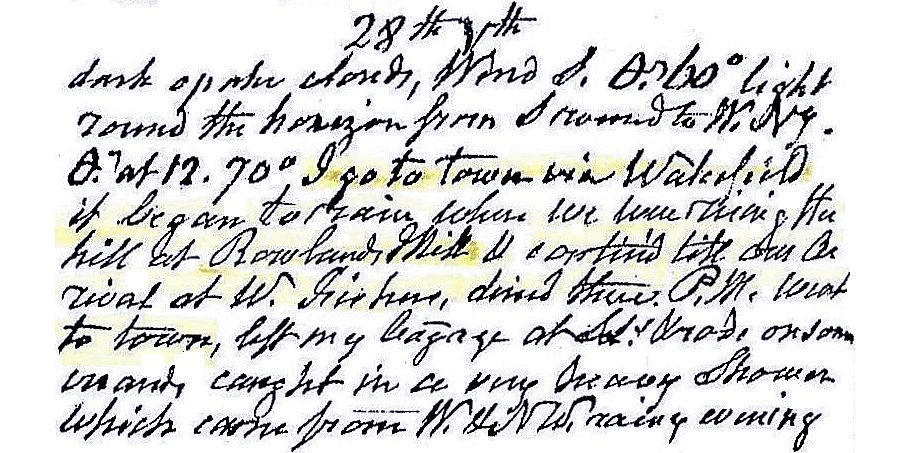 28th
dark opake clouds, Wind S. 60° light
round the horizon from S round to W.
at 12. 70° I go to town via Wakefield
it began to rain when we were rising the
hill at Rowlands Mill & contind till our Ar
rival at W. Fishers, dined there. P.M. went
to town, left my bagage at on some
errands, caught in a very heavy Shower
which came from W. & NW. rainy evening